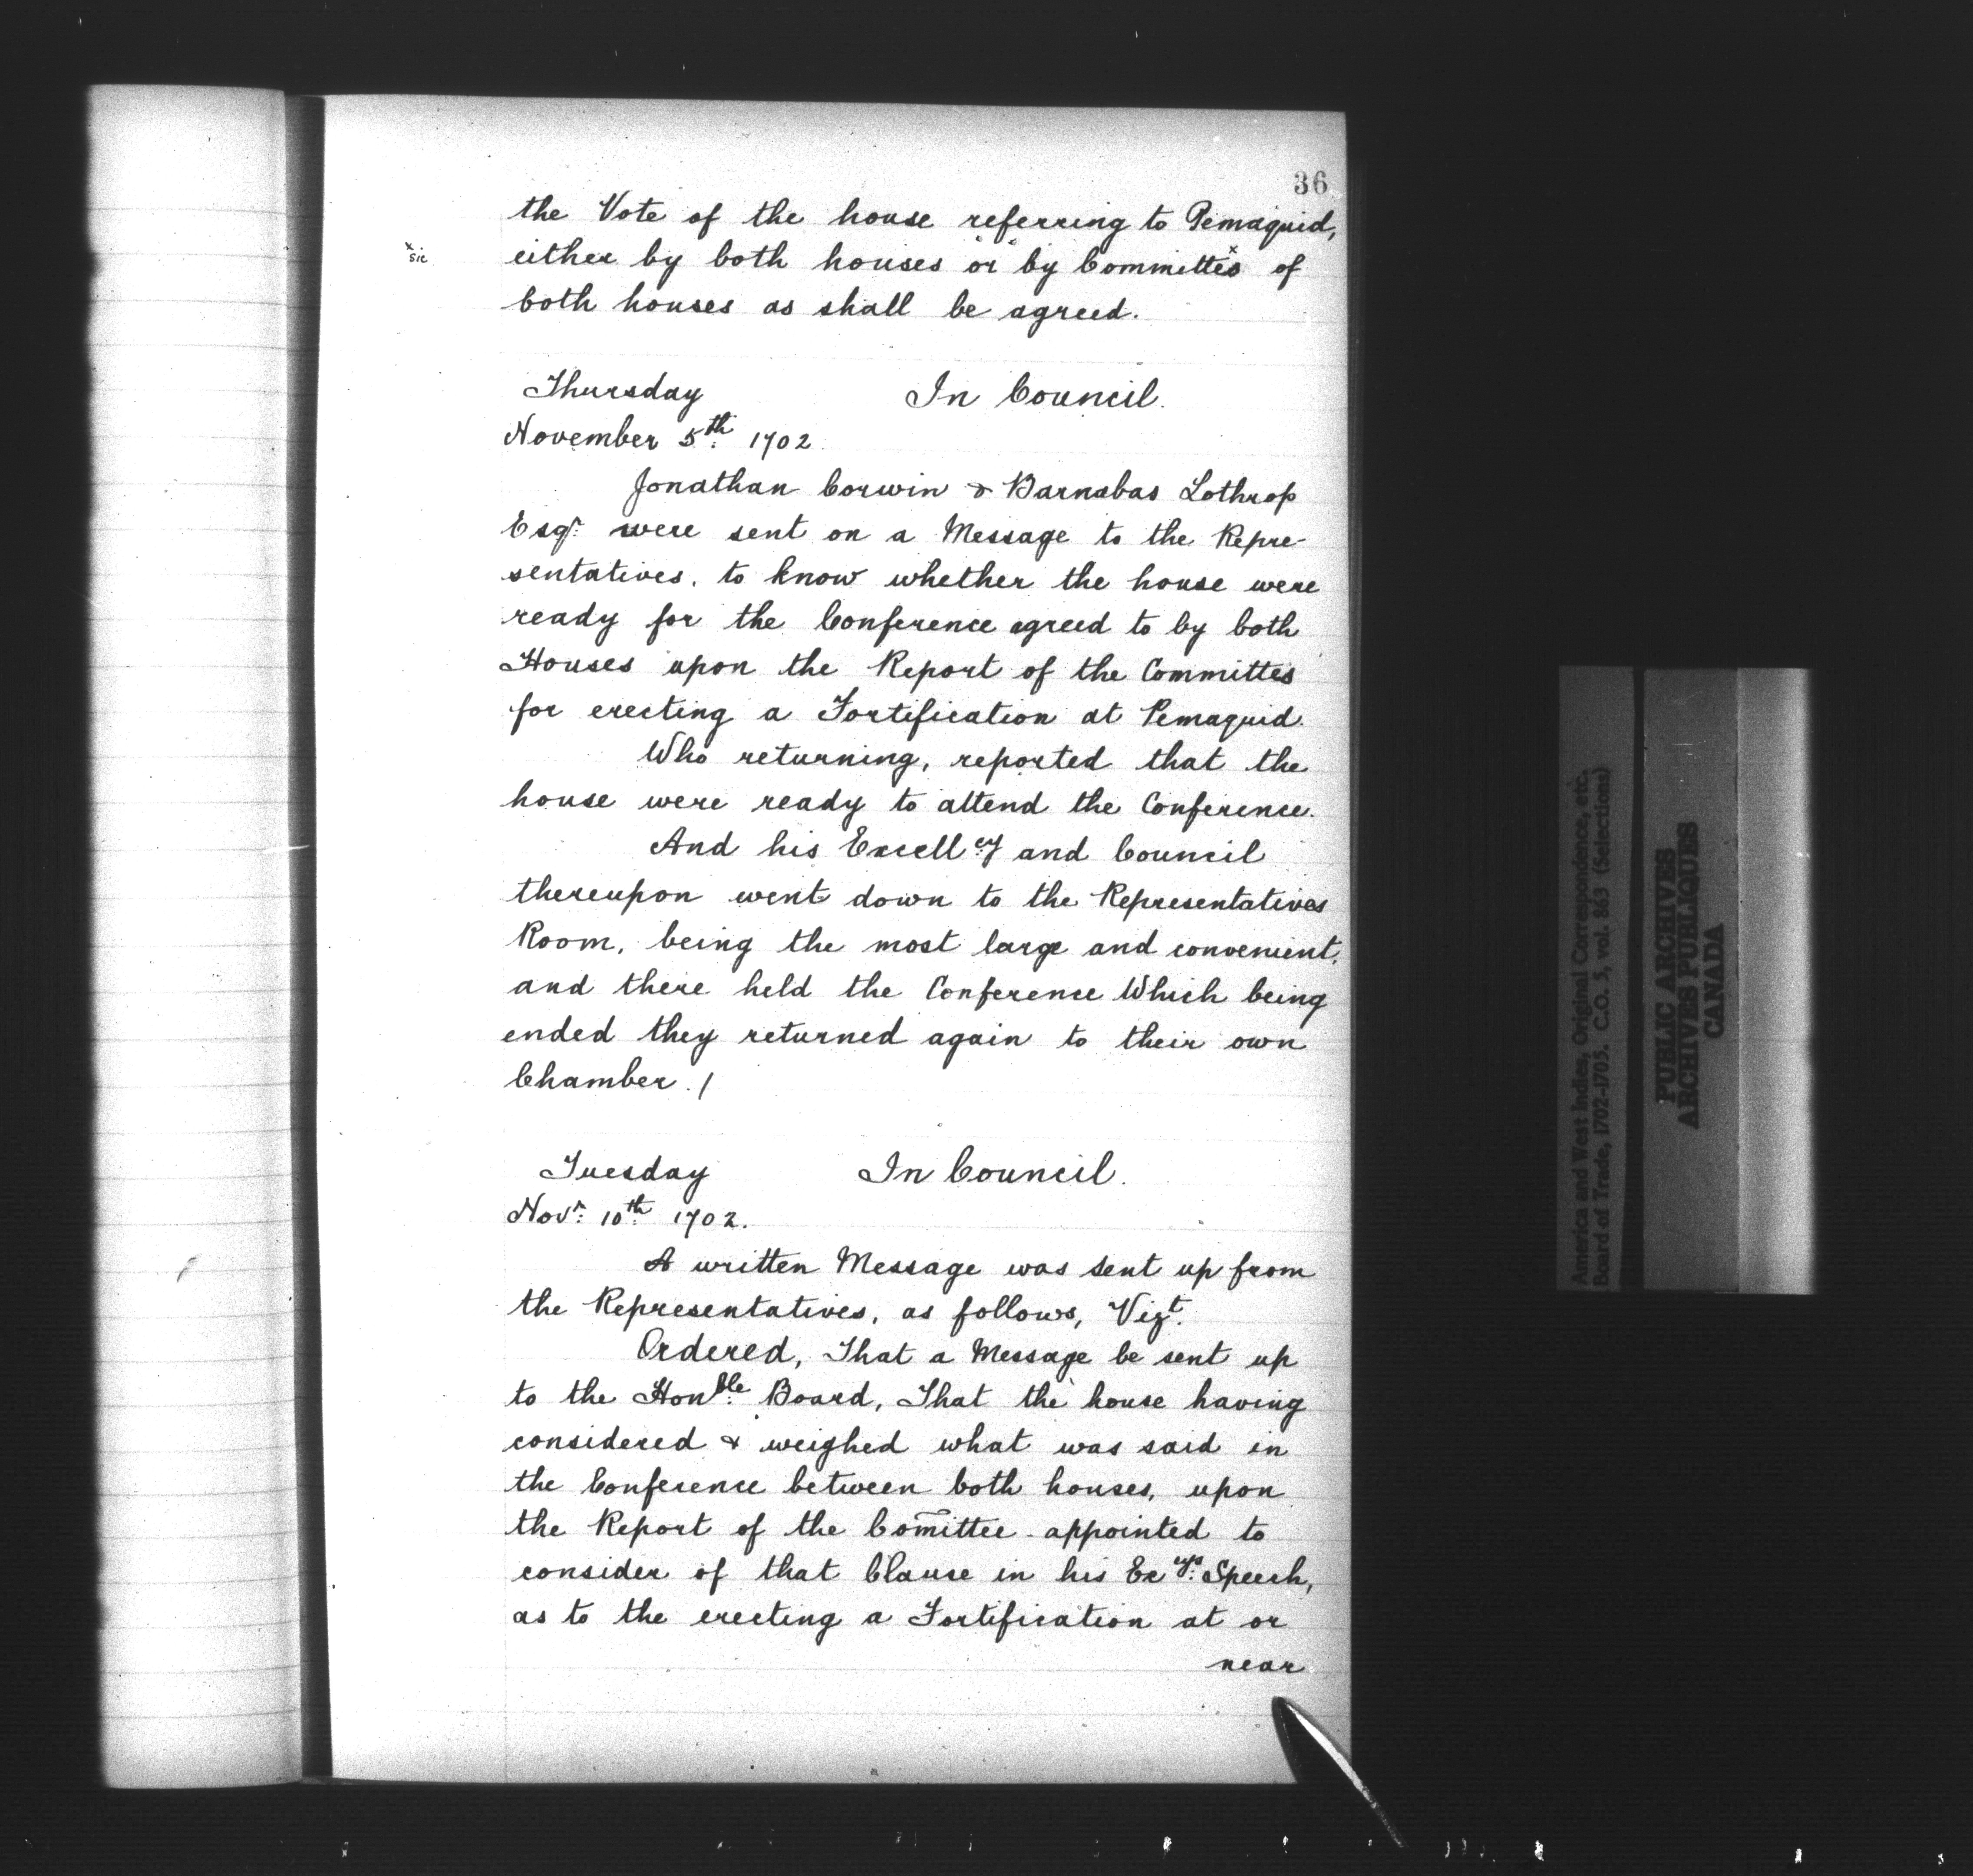 36
the Vote of the house referring to Pemaquid,
x sic
either by both houses or by Committes x of
both houses as shall be agreed.
Thursday In Council.
November 5th. 1702.
Jonathan Corwin & Barnabas Lothrop
Esqr. were sent on a Message to the Repre-
sentatives, to know whether the house were
ready for the Conference agreed to by both
Houses upon the Report of the Committes
for erecting a Fortification at Pemaquid.
Who returning, reported that the
house were ready to attend the Conference.
And his Excellcy and Council
thereupon went down to the Representatives
Room, being the most large and convenient,
and there held the Conference Which being
ended they returned again to their own
Chamber. /
Tuesday In Council.
Novr: 10th. 1702.
A written Message was sent up from
the Representatives, as follows, Vizt.
Ordered, That a Message be sent up
to the Honble. Board, That the house having
considered & weighed what was said in
the Conference between both houses, upon
the Report of the Com̅ittee appointed to
consider of that Clause in his Excys. Speech,
as to the erecting a Fortification at or
near
America and West Indies, Original Correspondence, etc.
Board of Trade, 1702-1705. C.O. 5, vol. 863 (Selections)
PUBLIC ARCHIVES
ARCHIVES PUBLIQUES
CANADA